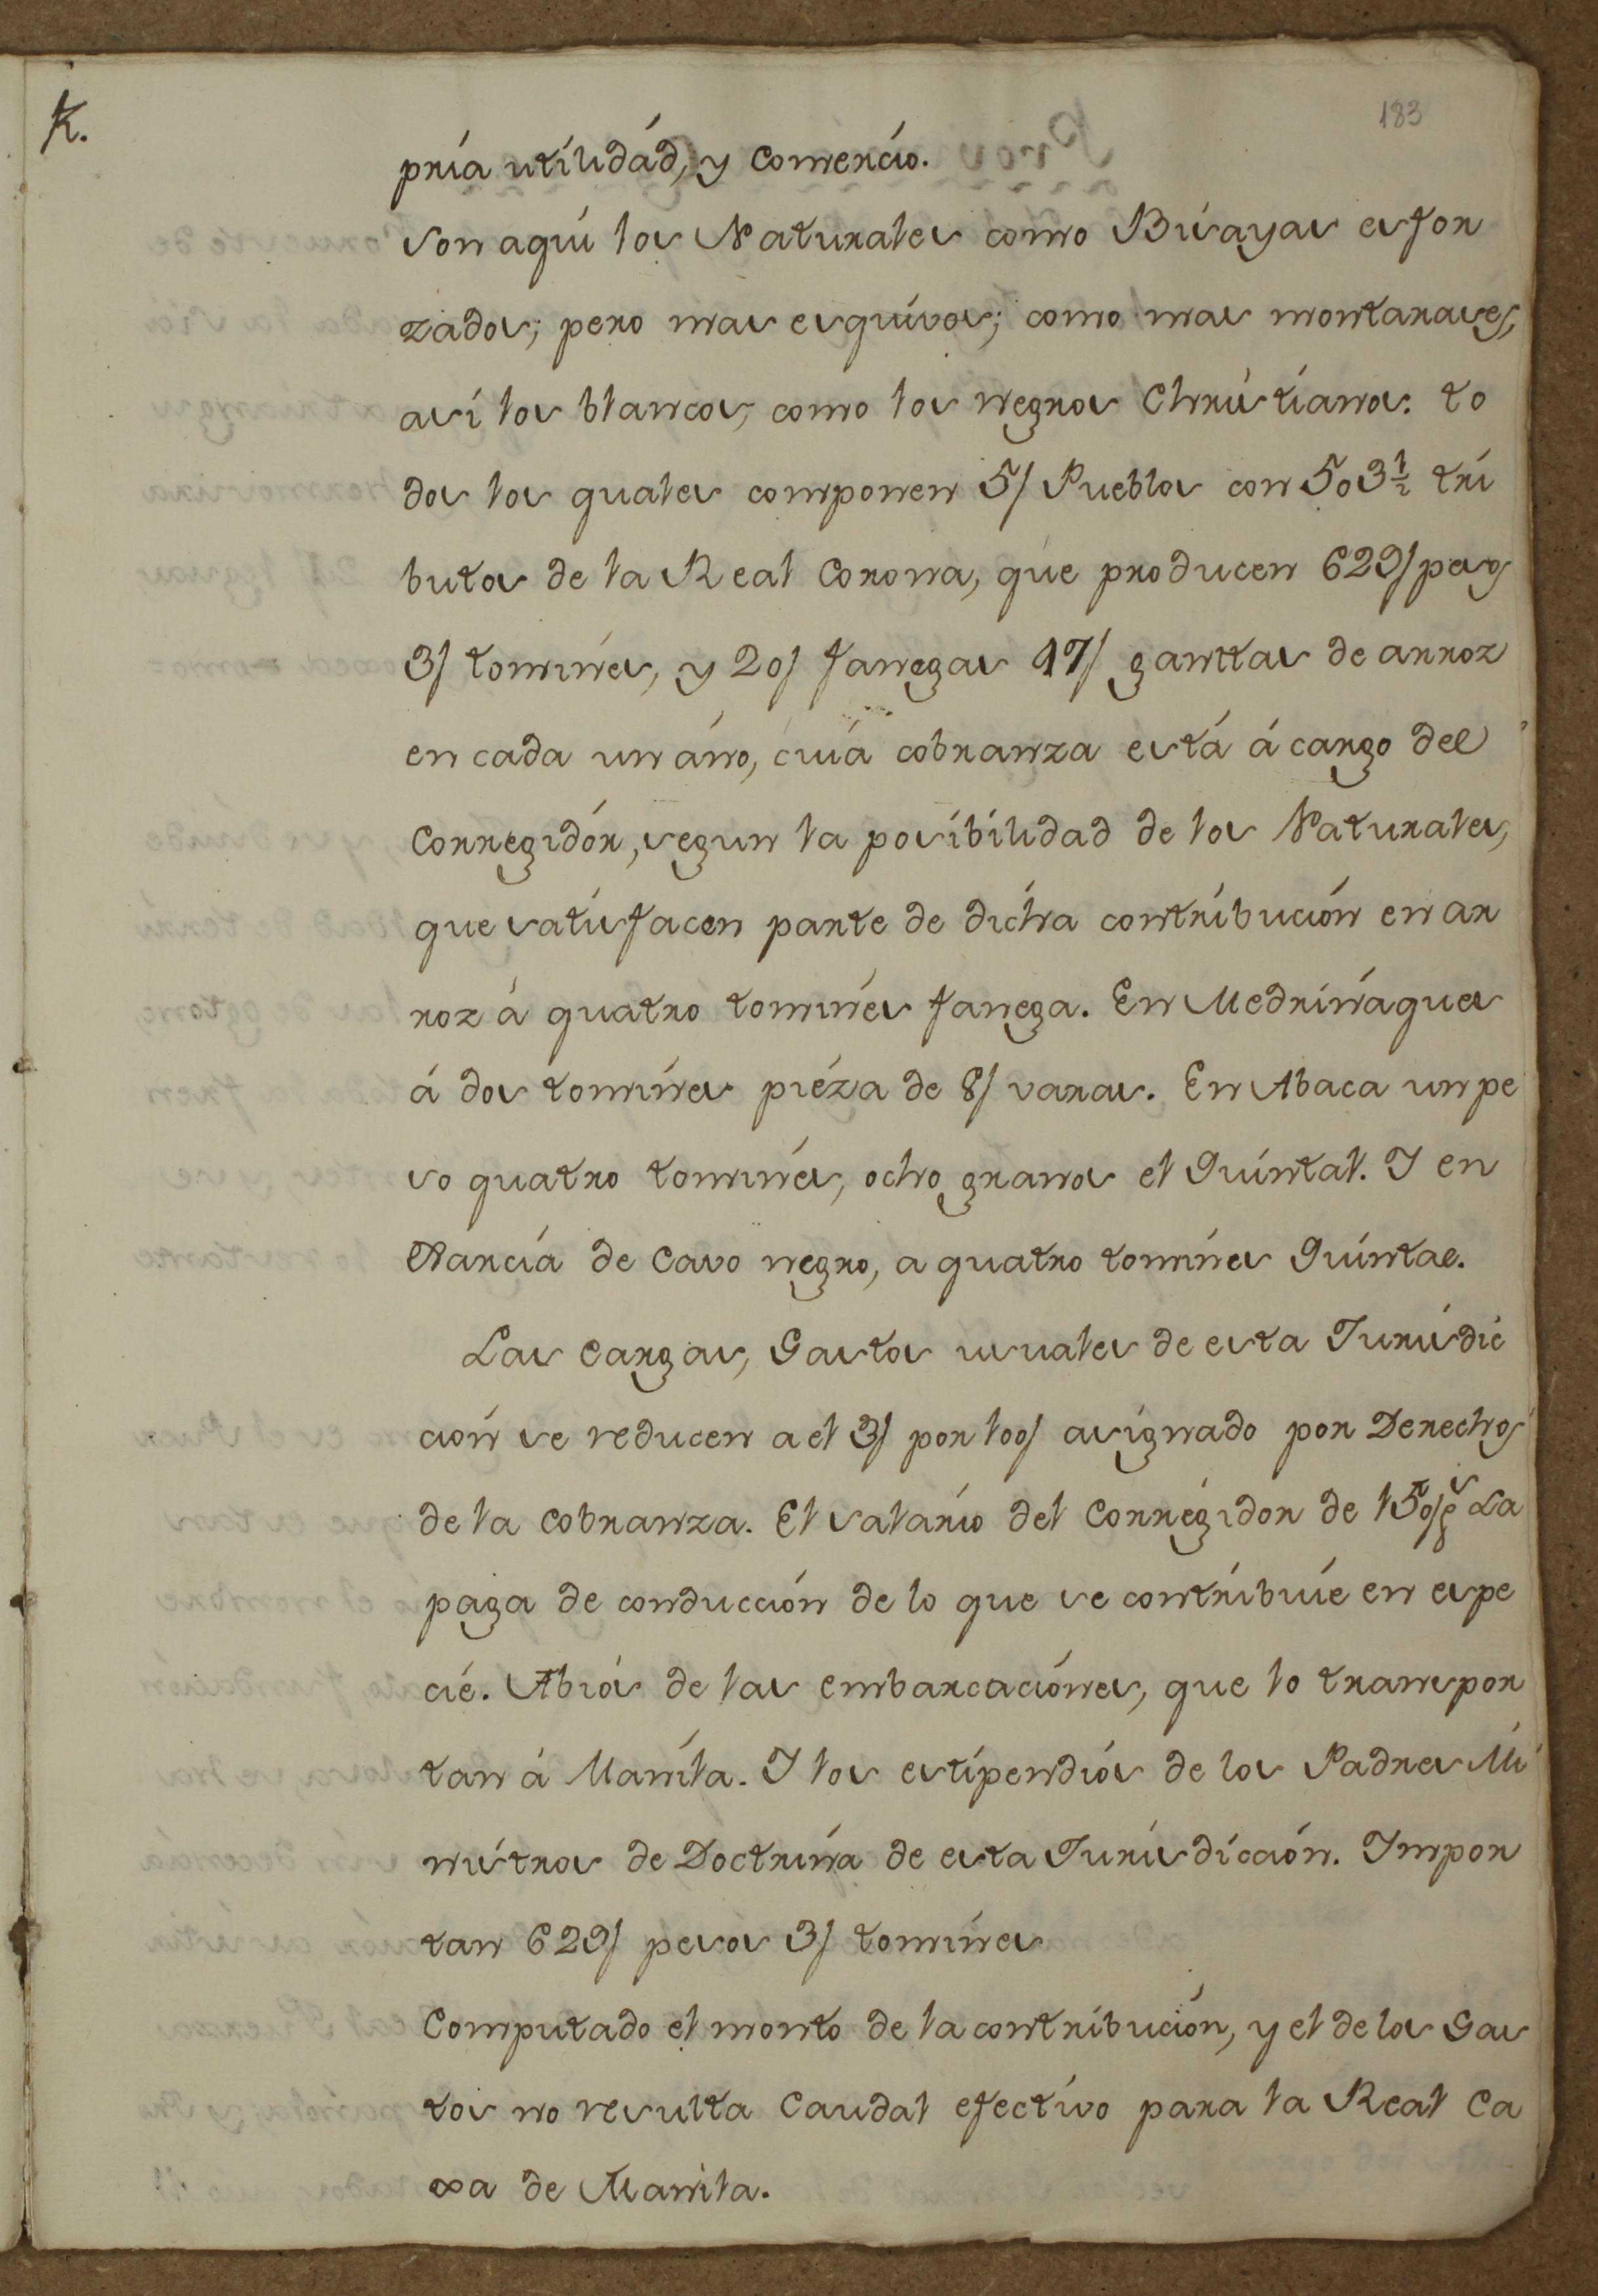 K.
183
pria utilidád, y Comercio.
Son aquí los Naturales como Bisayas esfor
zados; pero mas esquivos; como mas montarases,
asi los blancos, como los negros Christianos. to
dos los quales componen 5/ Pueblos con 503½ tri
butos de la Real Corona, que producen 629/ pesos
3/ tomines, y 20/ fanegas 17/ ganttas de arroz
en cada un áño, cuiá cobranza está á cargo del
Corregidór, segun la posibilidad de los Naturales,
que satisfacen parte de dicha contribución en ar
roz á quatro tominés fanega. En Medriñaques
á dos tomines piéza de 8/ varas. En Abaca un pe
so quatro tominés, ocho granos el Quintal. I en
Xarcia de Cavo negro, a quatro tomines Quintal.
Las Cargas, Gastos usuales de esta Jurisdic
ción se reducen a el 3/ por 100/ asignado por Derechos
de la Cobranza. El salario del Corregidor de 150/ ps La
paga de conducción de lo que se contribuie en espe
cié. Abiós de las embarcaciónes, que lo transpor
tan á Manila. I los estipendiós de los Padres Mi
nistros de Doctrina de esta Jurisdicción. Impor
tan 629/ pesos 3/ tomines
Computado el monto de la contribución, y el de los Gas
tos no resulta Caudal efectivo para la Real Ca
xa de Manila.